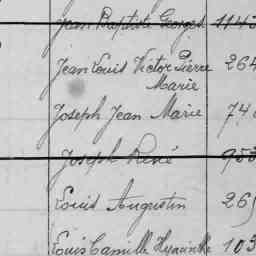 Jean Baptiste Georges 114
Jean Louis Victor Pierre 264
Marie
Joseph Jean Marie 74
Joseph René 953
Louis Augustin 26
Louis Camille Hyacinthe 103